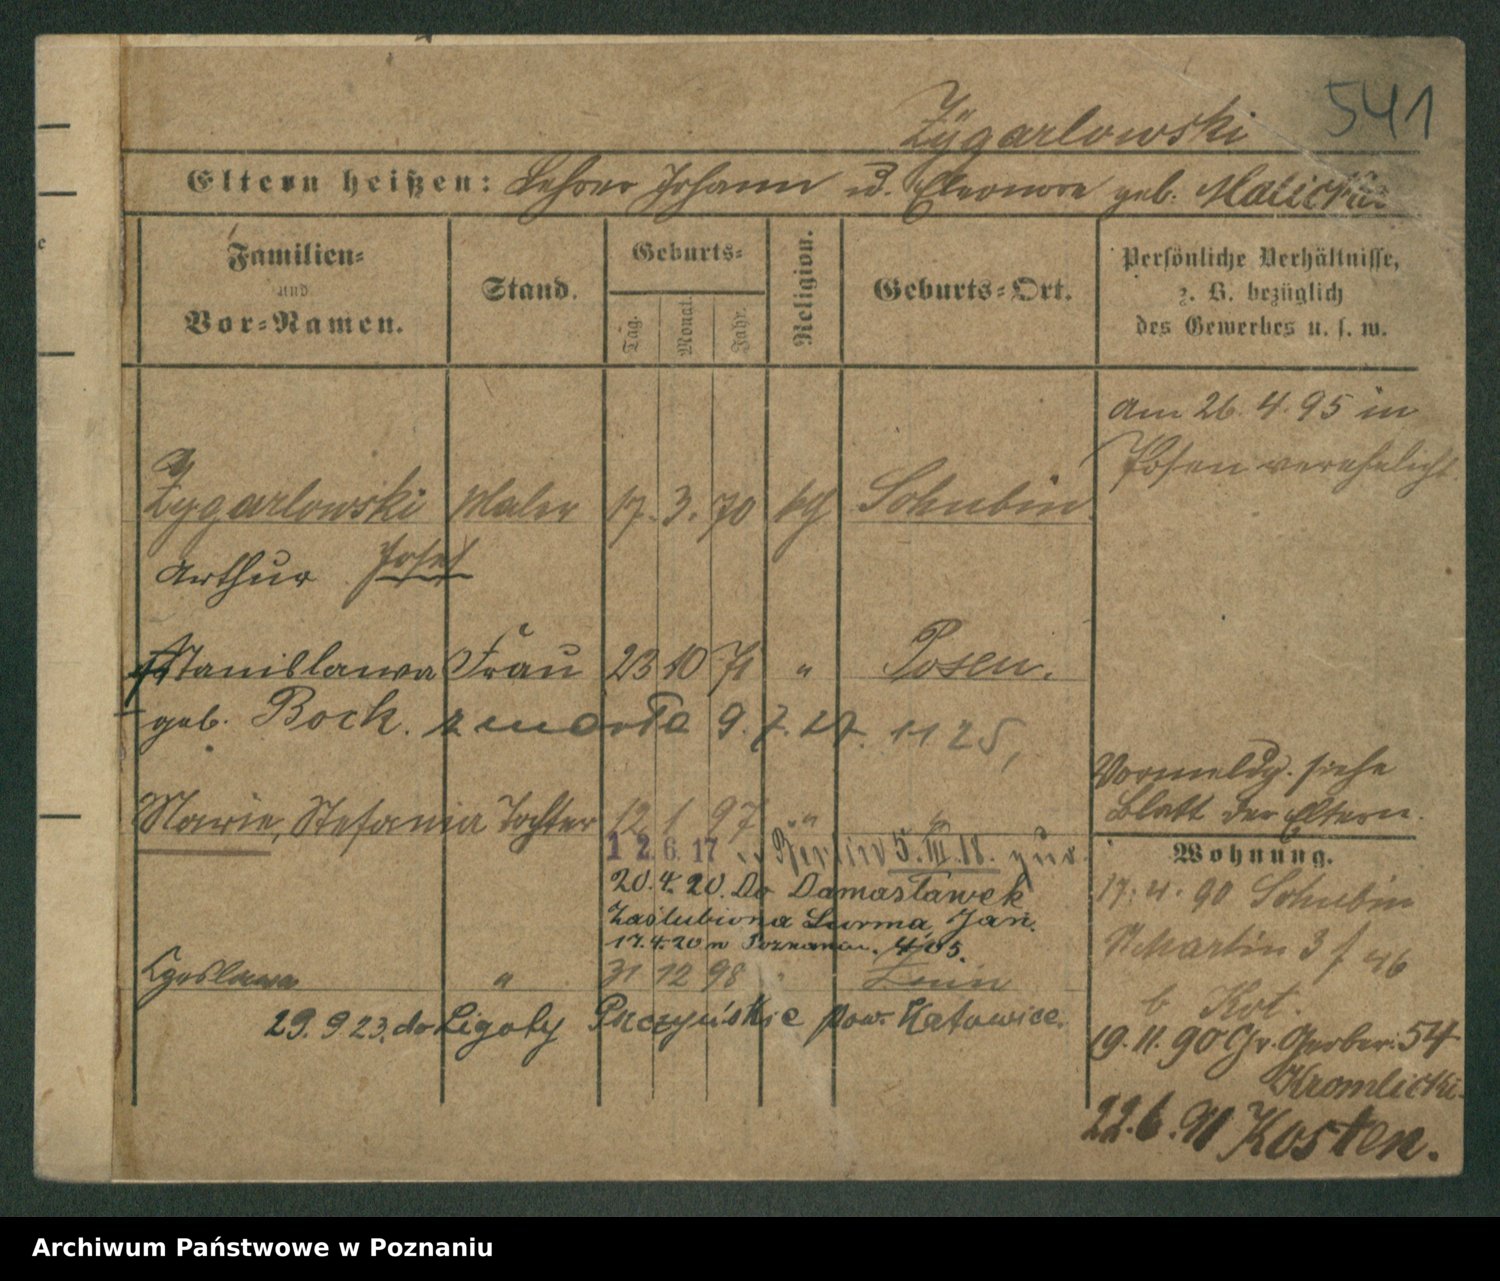 541
Zÿgarlowski
Eltern heißen: Lehrer Johann u. Eleonore geb. Malicka
Familien- und Vor-Namen.
Stand.
Geburts-
Tag.
Monat.
Jahr.
Religion.
Geburts-Ort.
Persönliche Verhältnisse,
z. B. bezüglich
des Gewerbes u. s. w.
Am 26. 4. 95 in
Posen verehelicht
Zygarlowski Maler 17. 3. 70 kth Schubin.
Arthur Josef
Stanislawa Frau 23 10 71 " Posen.
geb. Bock. zmarła 9. 7. 27. 1125,
Vormeldg. siehe
Blatt der Eltern.
Marie, Stefania Tochter 12 1 97 " "
12.6.17 Berlin 5. III. 18. zur.
20. 4. 20. Do Damasławek
Zaślubiona Surma, Jan.
17. 4. 20 w Poznaniu. 405.
" 31 12 98 "
29. 9. 23. do Ligoty Pszczyńskie pow. Katowice.
Wohnung.
17. 4. 90 Schubin
St Martin 3 f 46
b Kot.
19. 11. 90 Gr. Gerber. 54
Kromlicki.
22. 6. 91 Kosten.
Archiwum Państwowe w Poznaniu